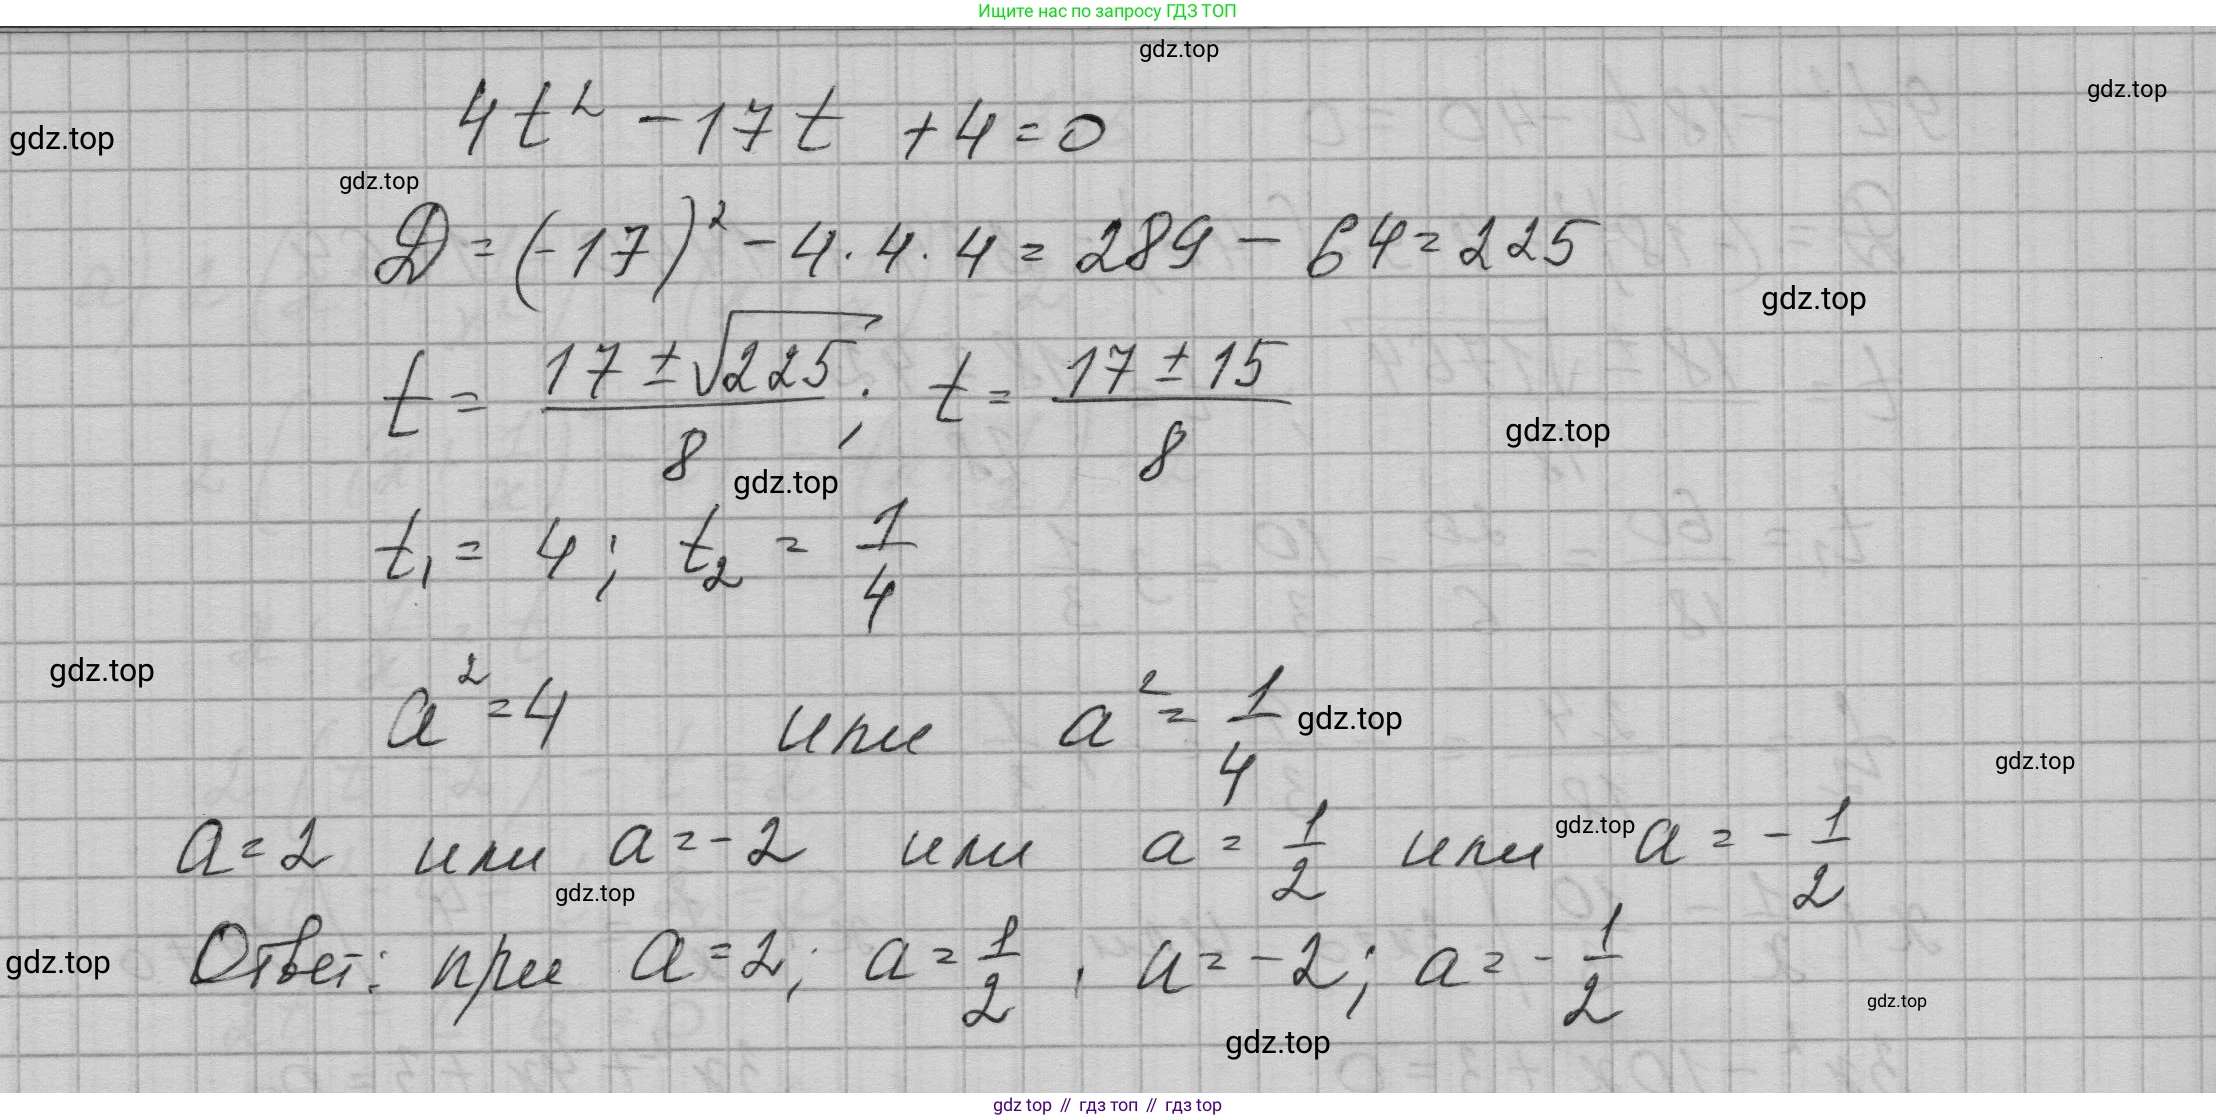 Ищите нас по запросу ГДЗ ТОП
gdz.top
gdz.top
4t² - 17t + 4 = 0
gdz.top
gdz.top
D = (-17)² - 4 · 4 · 4 = 289 - 64 = 225
gdz.top
t = (17 ± √225)/8 ; t = (17 ± 15)/8
gdz.top
gdz.top
t₁ = 4 ; t₂ = 1/4
gdz.top
a² = 4 или a² = 1/4
gdz.top
gdz.top
a = 2 или a = -2 или a = 1/2 или a = - 1/2
gdz.top
gdz.top
Ответ: при a = 2; a = 1/2 , a = -2; a = - 1/2
gdz.top
gdz.top
gdz.top
gdz top // гдз топ // гдз top